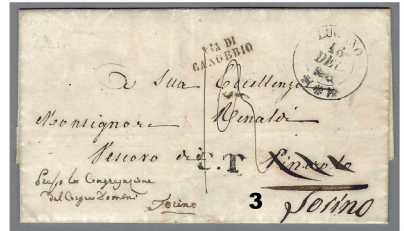 VIA DI
CANOBBIO
LUGANO
16
DEC
A Sua Eccellenza
Monsignore Rinaldi
Vescovo di Pinerolo
C.T
Presso la Congregazione
del Corpus Domini
Torino
3
Torino